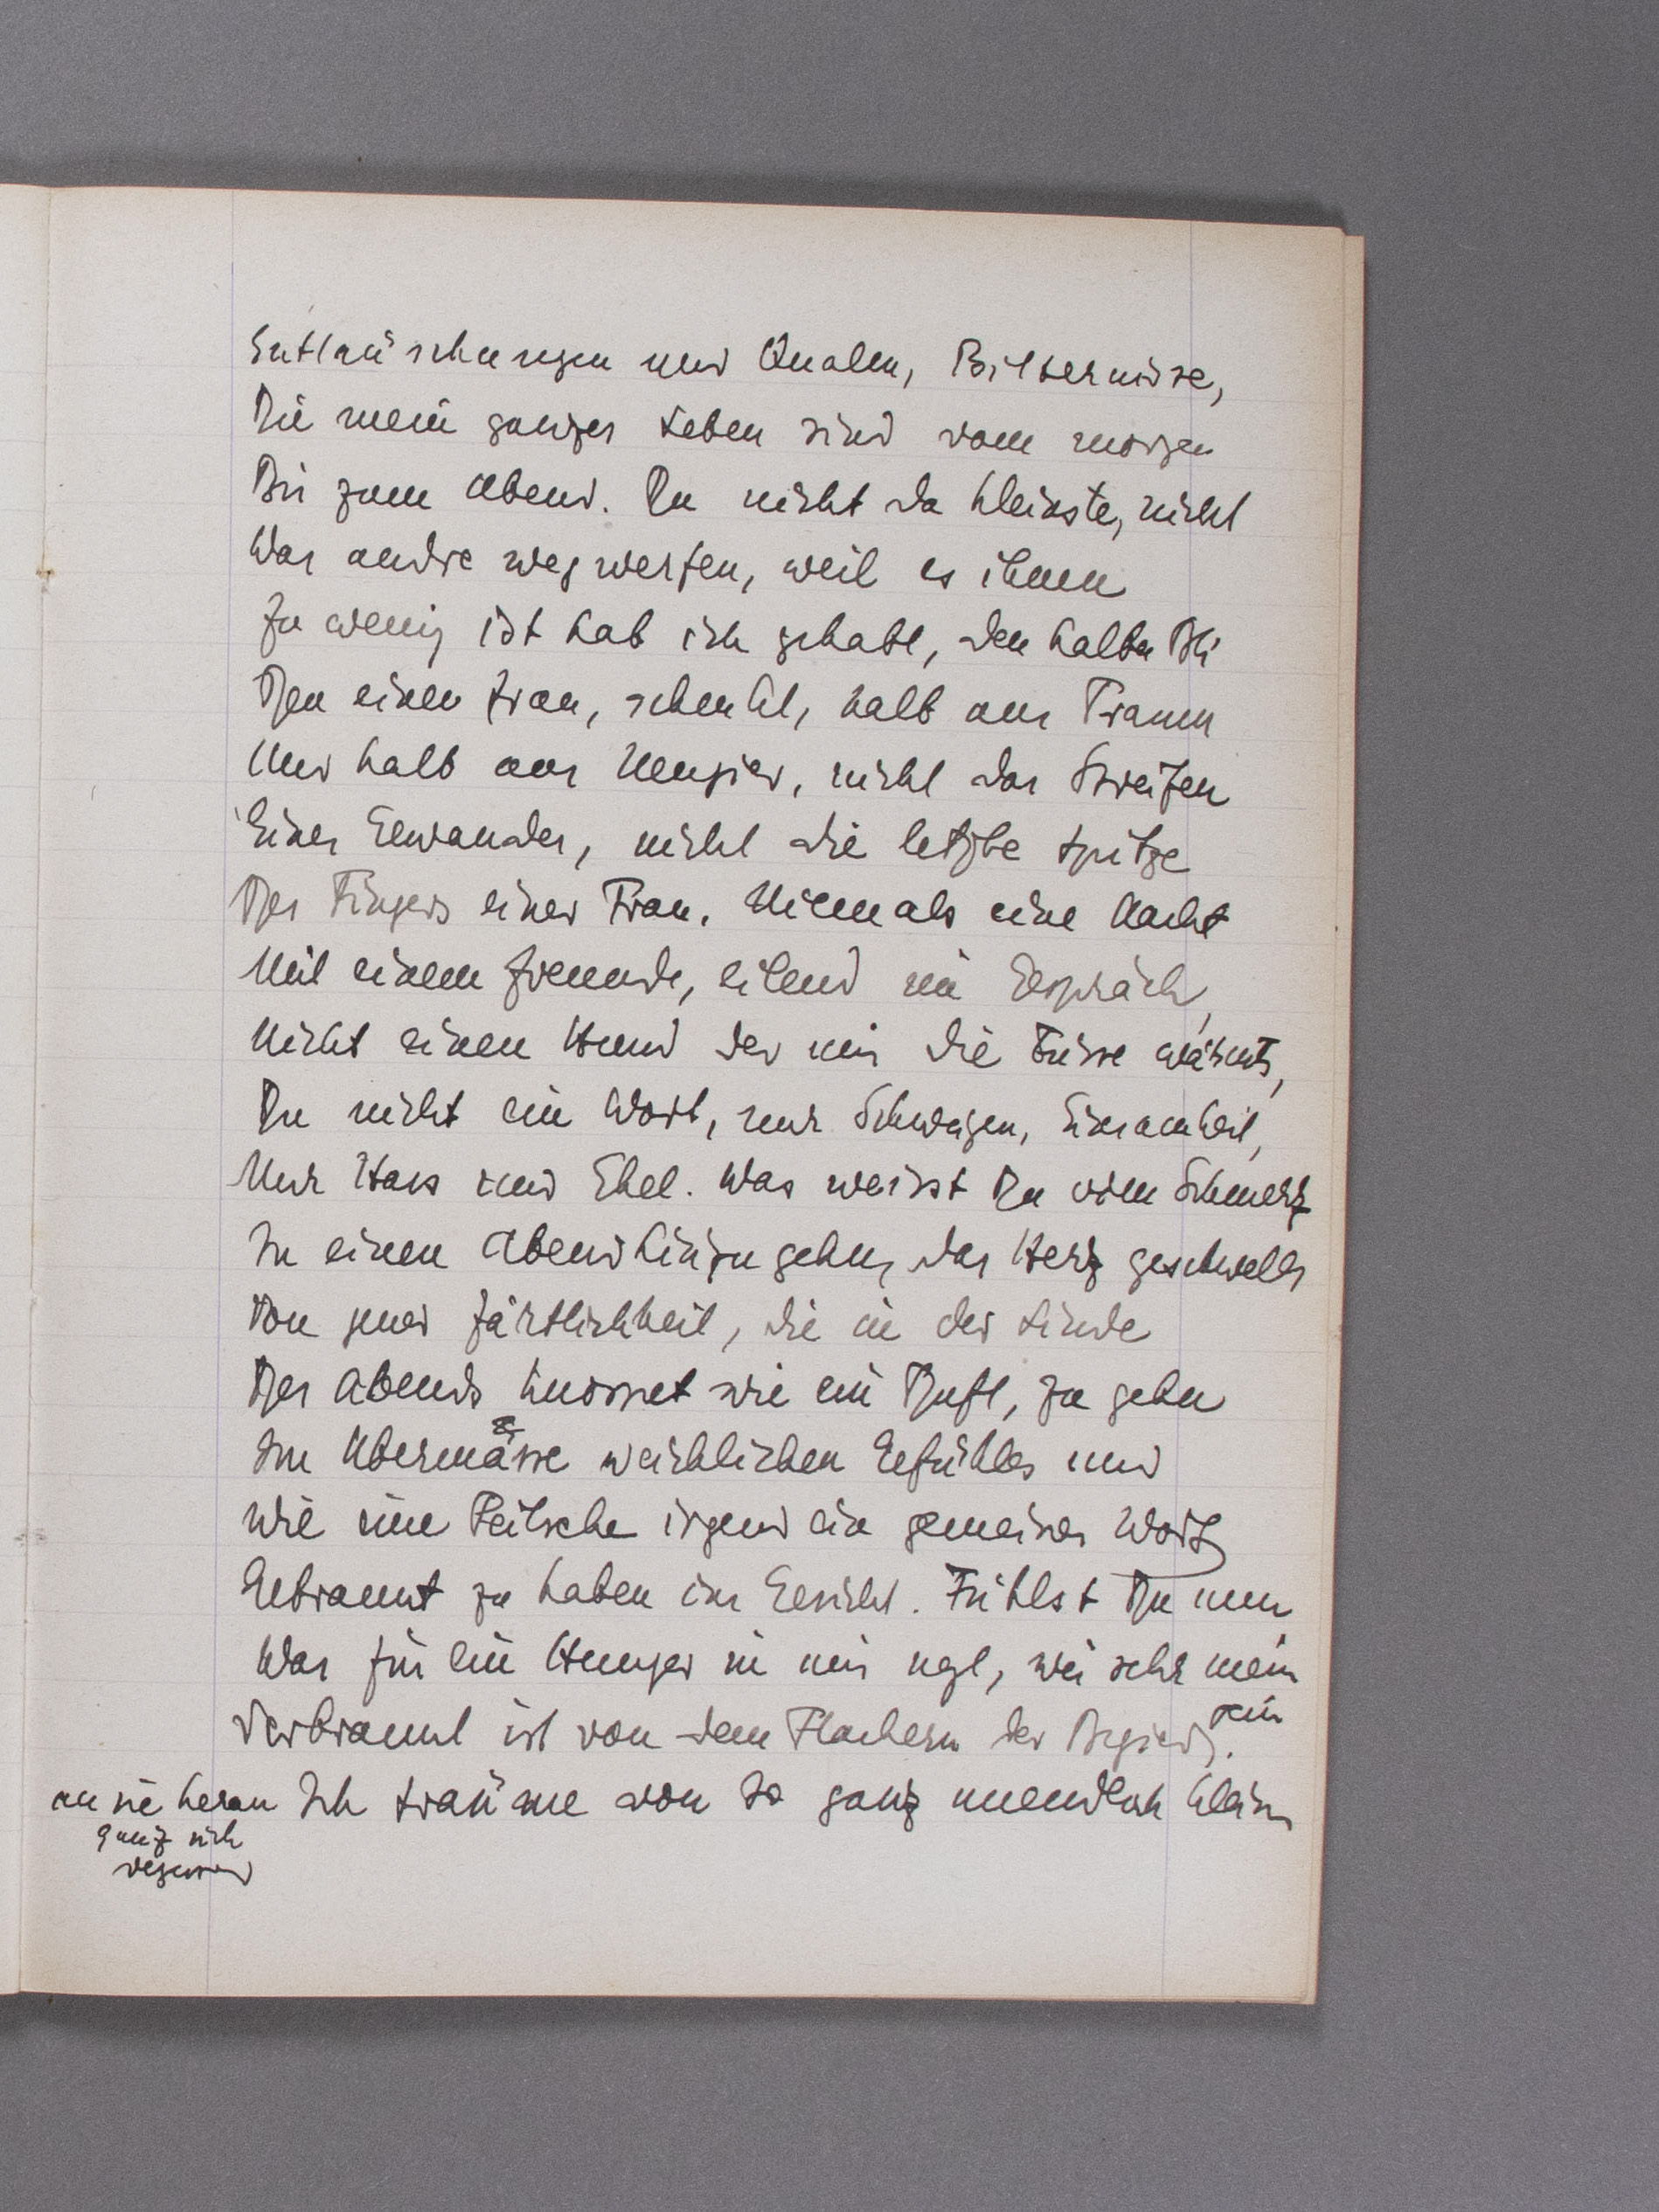 Enttäuschungen und Qualen, Bitternisse,
Die mein ganzes Leben sind vom morgen
Bis zum Abend. Du nicht da kleinste, nicht
Was andre wegwerfen, weil es ihnen
Zu wenig ist hab ich gehabt, den halben Bli
Den einer Frau, schenkt, halb aus Traum
Und halb aus Neugier, nicht das Streifen
Eines Gewandes, nicht die letzte Spitze
Des Fingers einer Frau. Niemals eine Nacht
Mit einem Freunde, eilend im Gespräch,
Nicht einen Hund der mir die Füsse wärmts,
Du nicht ein Wort, nur Schweigen, Einsamkeit,
Nur Hass und Ekel. Was weisst Du vom Schmerz
In einen Abend hinzugehn, das Herz geschwellt
Von jener Zärtlichkeit, die in der Linde
Des Abends knospet wie ein Duft, zu gehn
Im Übermasse weichlichen Gefühles und
Wie eine Peitsche irgend ein gemeines Wort
Gebrannt zu haben ins Gesicht. Fühlst Du nun,
Was für ein Hunger in mir regt, wie sehr mein
sein
Verbrannt ist von dem Flackern der Begierd.
an sie heran Ich träume von so ganz unendlich klein
ganz sich
vergessend